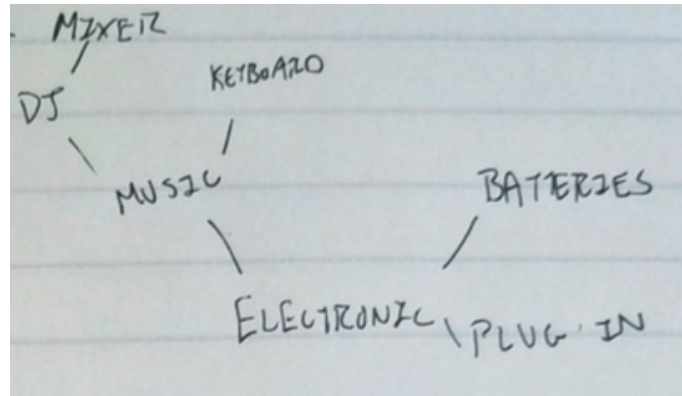 MIXER
KEYBOARD
DJ
MUSIC
BATERIES
ELECTRONIC
PLUG IN